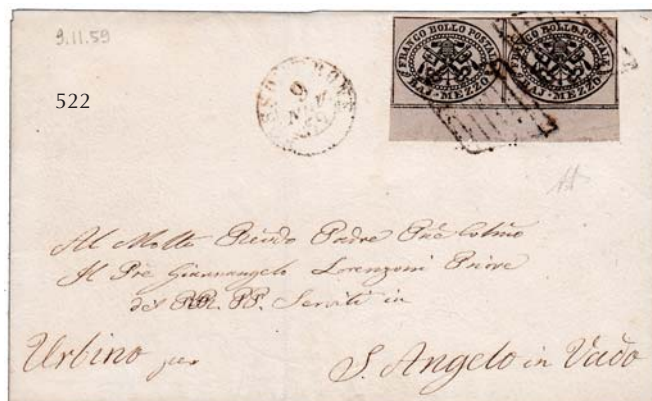 9.11.59
522
FRANCO BOLLO POSTALE
BAJ · MEZZO
FRANCO BOLLO POSTALE
BAJ · MEZZO
9
NOV
59
Al Molto Revdo Padre Pre
Il Pre Giannangelo Lorenzoni Priore
dei RR. PP. Serviti in
Urbino per S. Angelo in Vado